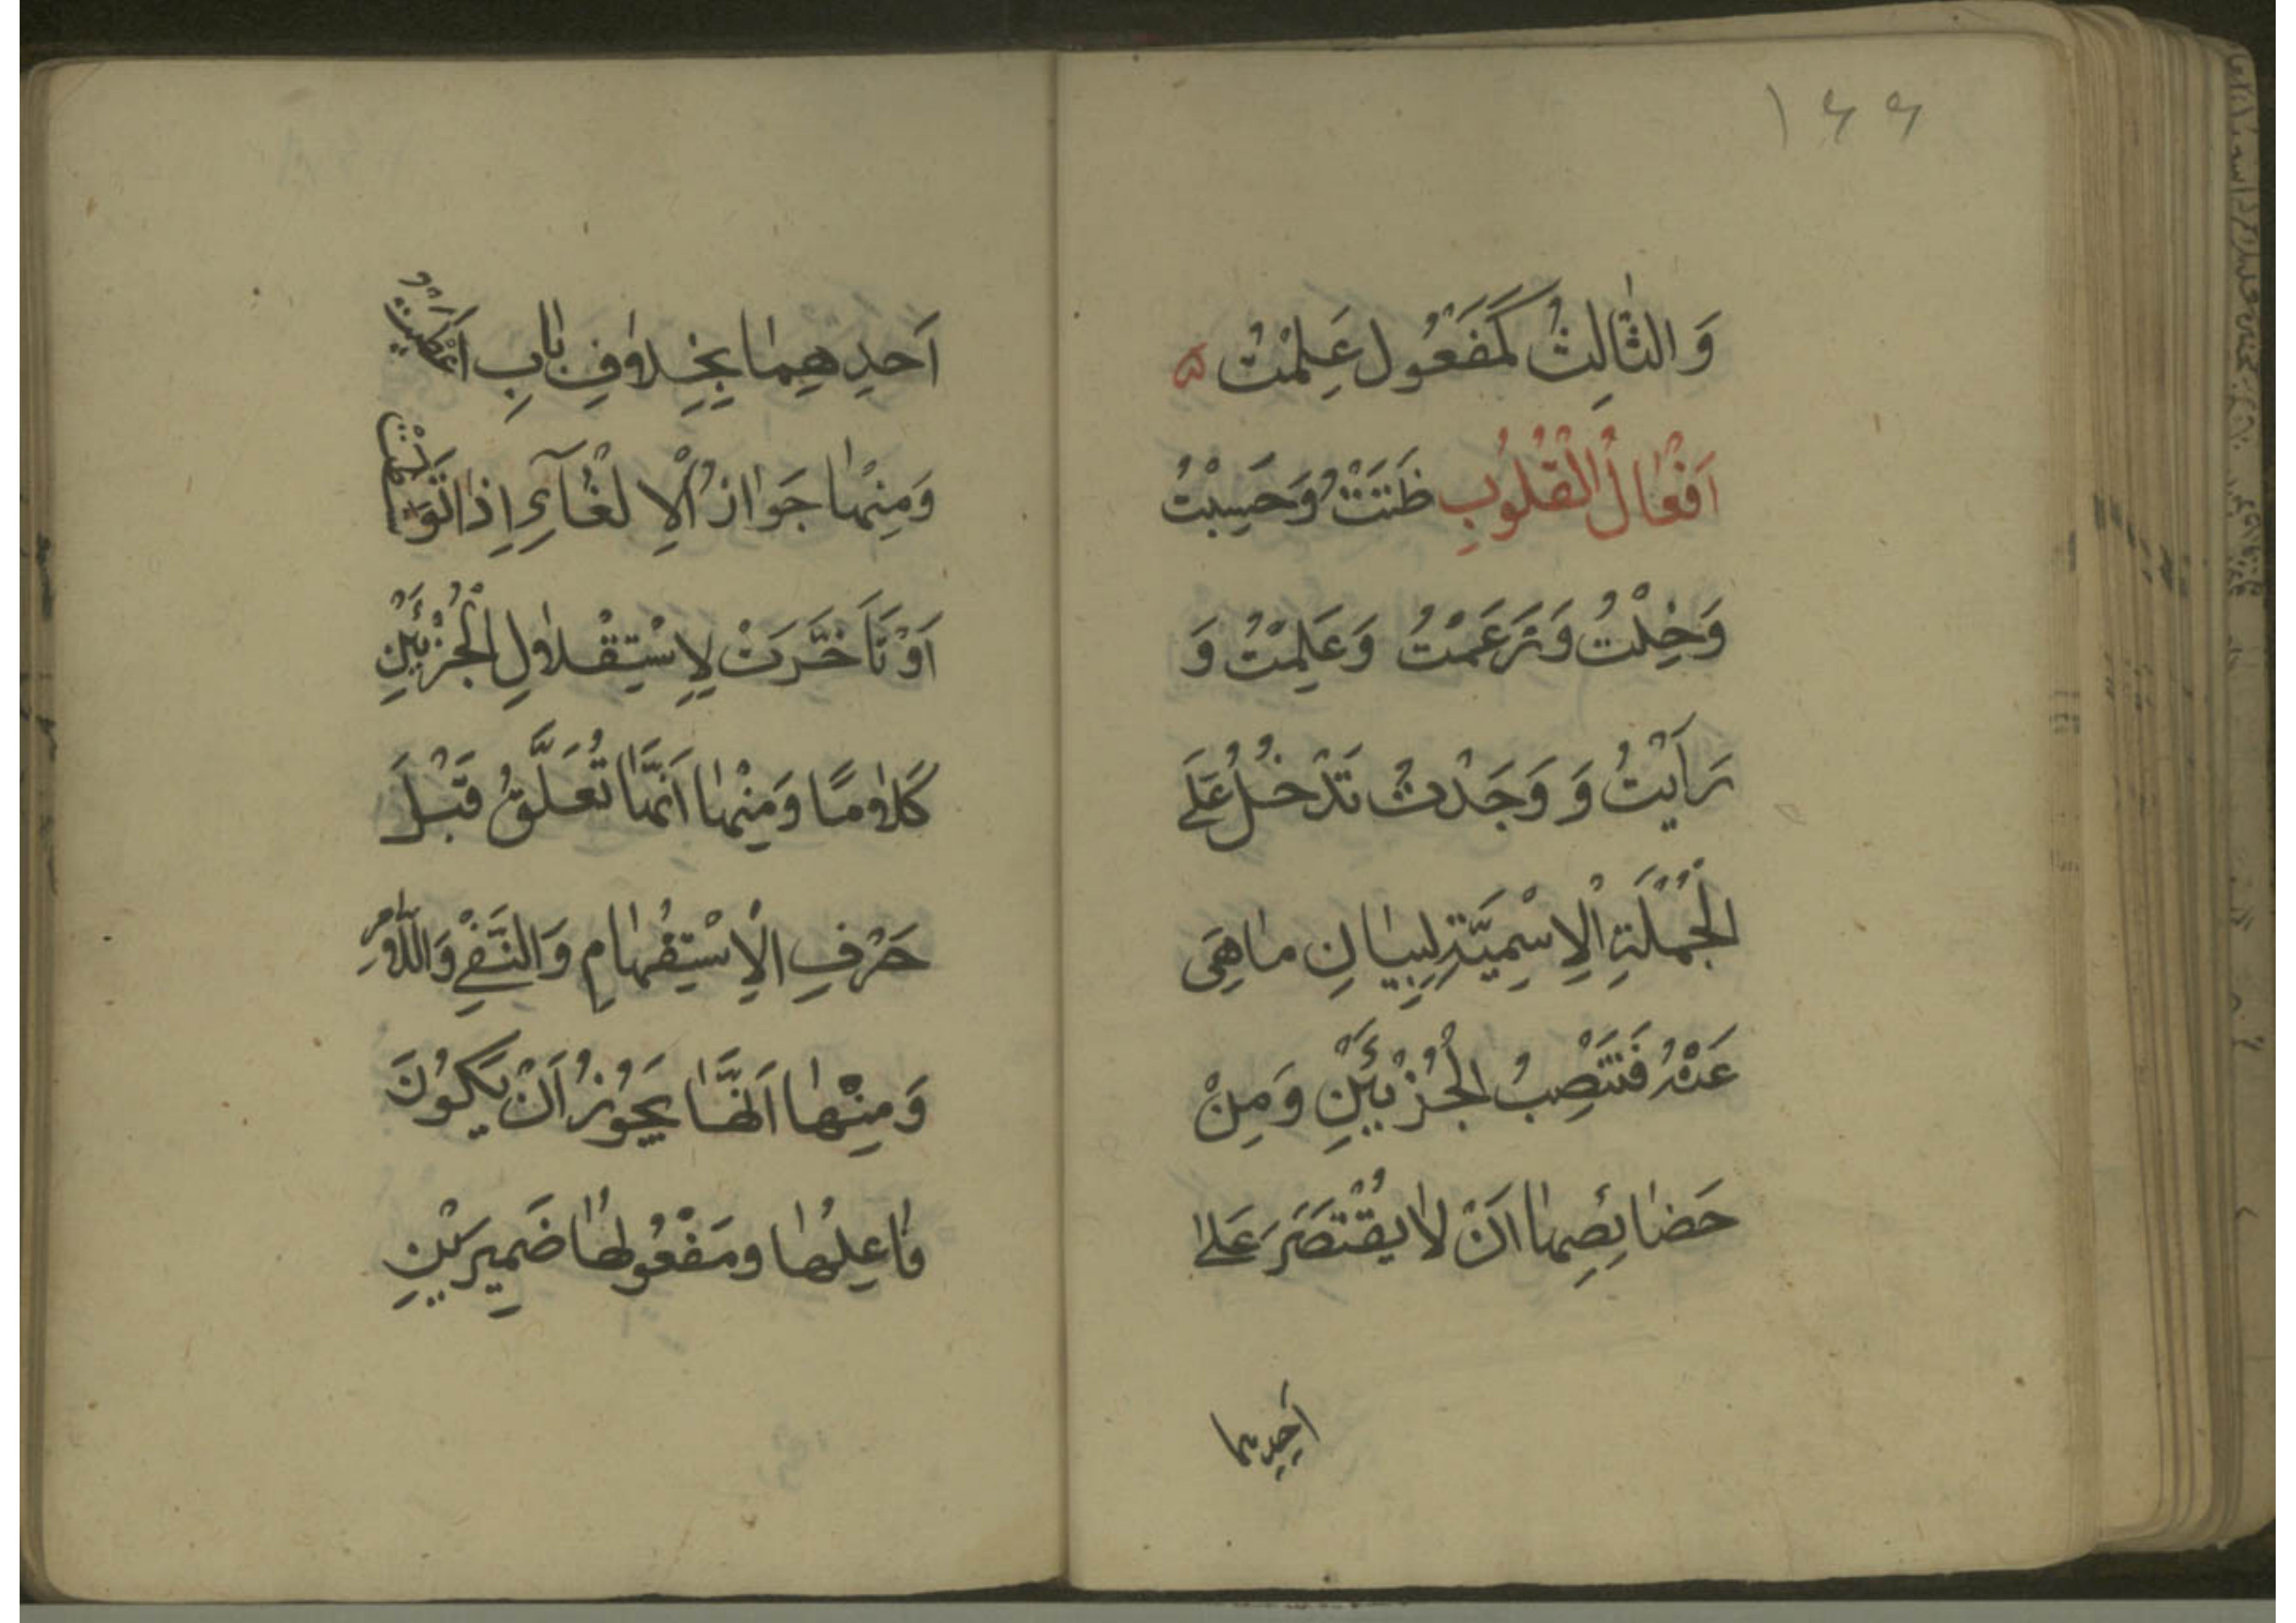 ١٤٤
وَالثَّالِثُ كَمَفْعُولِ عَلِمْتُ
اَفْعَالُ الْقُلُوبِ ظَنَنْتُ وَحَسِبْتُ
وَخِلْتُ وَزَعَمْتُ وَعَلِمْتُ وَ
رَاَيْتُ وَ وَجَدْتُ تَدْخُلُ عَلَى
الْجُمْلَةِ الْاِسْمِيَّةِ لِبَيَانِ مَا هِىَ
عَنْهُ فَتَنْصِبُ الْجُزْئَيْنِ وَمِنْ
خَصَائِصِهَا اَنْ لَا يُقْتَصَرَ عَلَى
اَحَدِهِمَا
اَحَدِهِمَا بِخِلَافِ بَابِ اَعْطَيْتُ
وَمِنْهَا جَوَازُ الْاِلْغَآءِ اِذَا تَوَسَّطَتْ
اَوْ تَاَخَّرَتْ لِاِسْتِقْلَالِ الْجُزْئَيْنِ
كَلَامًا وَمِنْهَا اَنَّهَا تُعَلَّقُ قَبْلَ
حَرْفِ الْاِسْتِفْهَامِ وَالنَّفْىِ وَاللَّامِ
وَمِنْهَا اَنَّهَا يَجُوزُ اَنْ يَكُونَ
فَاعِلُهَا ومَفْعُولُهَا ضَمِيرَيْنِ